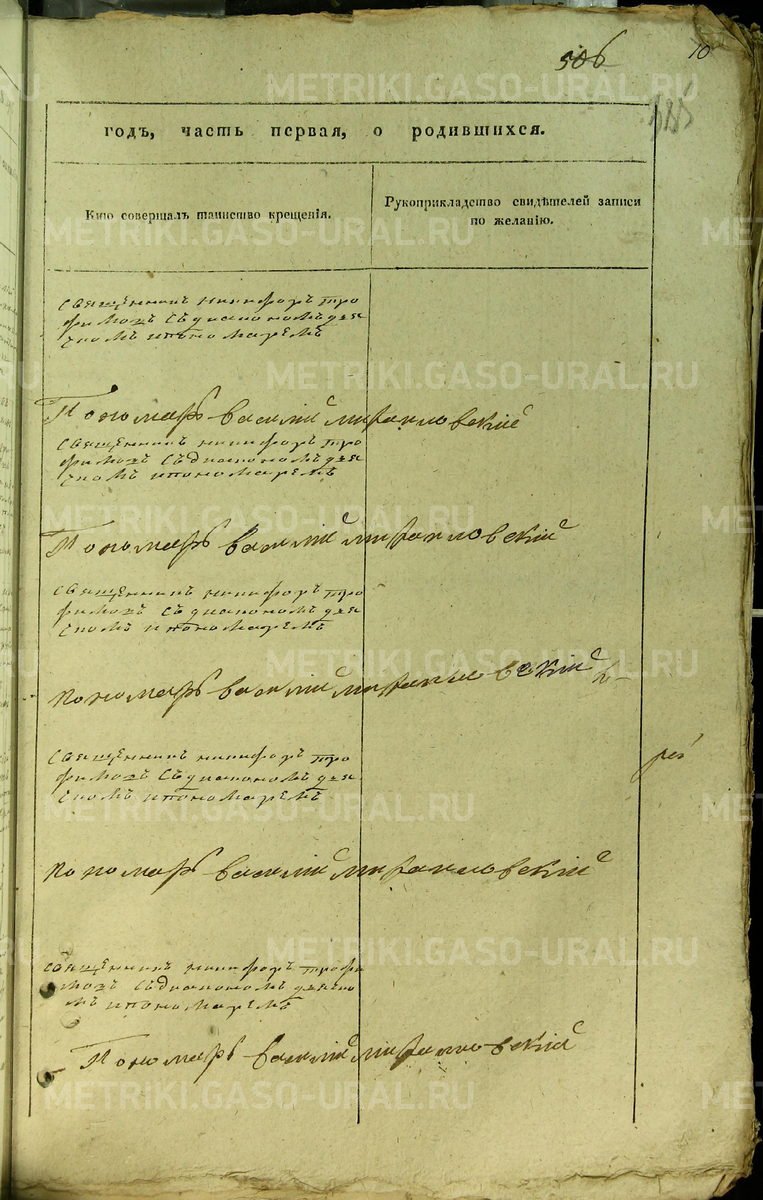 506
10
годъ, часть первая, о родившихся.
Кто совершалъ таинство крещенія.
Рукоприкладство свидѣтелей записи
по желанію.
священникъ никифоръ тро
фимовъ съ диакономъ дья
чкомъ и пономаремъ
Пономарь василий
священникъ никифоръ тро
фимовъ съ диакономъ дья
чкомъ и пономаремъ
Пономарь василий
священникъ никифоръ тро
фимовъ съ диакономъ дья
чкомъ и пономаремъ
пономарь василий
священникъ никифоръ тро
фимовъ съ диакономъ дья
чкомъ и пономаремъ
пономарь василий
священникъ никифоръ трофи
мовъ съ диакономъ дьячко
мъ и пономаремъ
Пономарь василий
METRIKI.GASO-URAL.RU